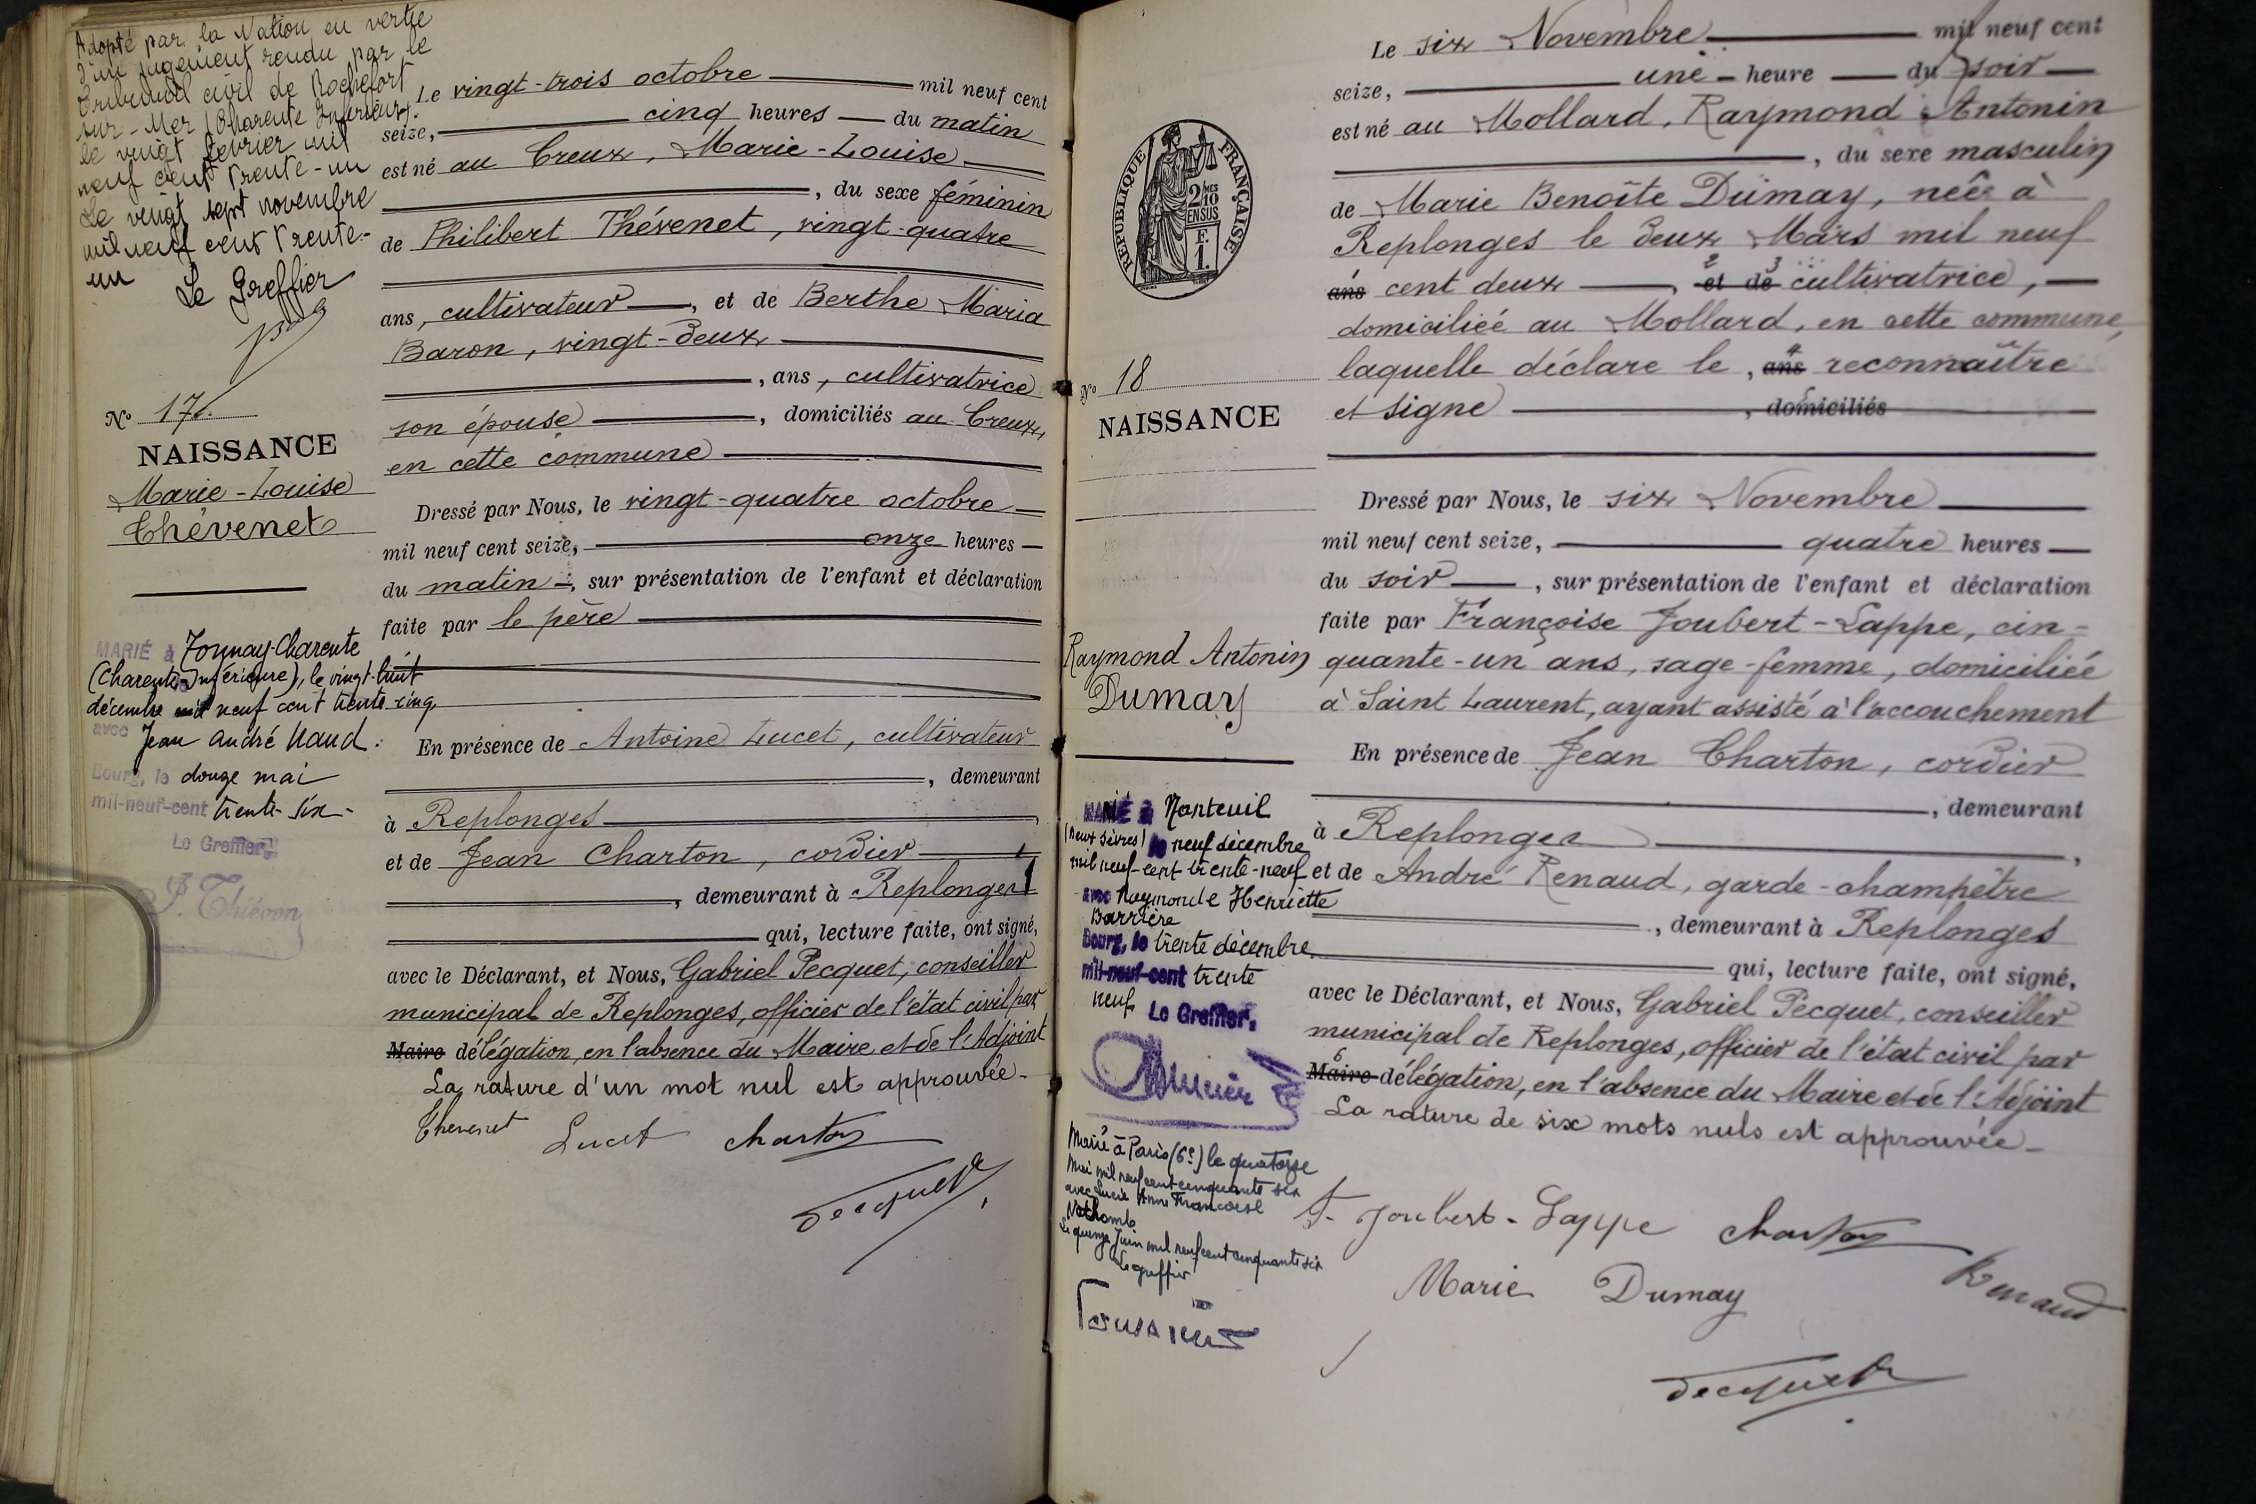 Adopté par la Nation en vertu
d'un jugement rendu par le
Tribunal civil de Rochefort
sur-Mer (Charente Inférieure)
le vingt février mil
neuf cent trente-un
Le vingt sept novembre
mil neuf cent trente-
un
Le Greffier
N° 17
NAISSANCE
Marie-Louise
Thévenet
MARIÉ à Tonnay-Charente
(Charente-Inférieure), le vingt-huit
décembre mil neuf cent trente-cinq
avec Jean André Naud.
Bourg, le douze mai
mil-neuf-cent trente-six-
Le Greffier,
Le vingt-trois octobre mil neuf cent
seize, cinq heures du matin
est né au Creux, Marie-Louise
, du sexe féminin
de Philibert Thévenet, vingt-quatre
ans, cultivateur, et de Berthe Maria
Baron, vingt-deux
, ans, cultivatrice
son épouse, domiciliés au Creux,
en cette commune
Dressé par Nous, le vingt-quatre octobre
mil neuf cent seize, onze heures
du matin, sur présentation de l'enfant et déclaration
faite par le père
En présence de Antoine Lucet, cultivateur
, demeurant
à Replonges
et de Jean Charton, cordier
, demeurant à Replonges
qui, lecture faite, ont signé,
avec le Déclarant, et Nous, Gabriel Pecquet, conseiller
municipal de Replonges, officier de l'état civil par
Maire délégation, en l'absence du Maire et de l'Adjoint
La rature d'un mot nul est approuvée-
Thevenet Lucet Charton
Pecquet
RÉPUBLIQUE FRANÇAISE
2/10
MES
EN SUS
F.
1.
N° 18
NAISSANCE
Raymond Antonin
Dumay
MARIÉ à Nanteuil
(Deux Sèvres) le neuf décembre
mil neuf-cent trente-neuf
avec Raymonde Henriette
Barrière
Bourg, le trente décembre
mil-neuf-cent trente
neuf Le Greffier,
Marié à Paris (6e) le quatorze
Mai mil neuf cent cinquante six
avec Lucie Anne Françoise
Nothomb
Le quinze Juin mil neuf cent cinquante six
Le greffier
Le six Novembre mil neuf cent
seize, une heure du soir
est né au Mollard, Raymond Antonin
, du sexe masculin
de Marie Benoîte Dumay, née à
Replonges le deux Mars mil neuf
ans cent deux, et de cultivatrice,
domiciliée au Mollard, en cette commune,
laquelle déclare le, ans reconnaître
et signe, domiciliés
Dressé par Nous, le six Novembre
mil neuf cent seize, quatre heures
du soir, sur présentation de l'enfant et déclaration
faite par Françoise Joubert-Lappe, cin-
quante-un ans, sage-femme, domiciliée
à Saint Laurent, ayant assisté à l'accouchement
En présence de Jean Charton, cordier
, demeurant
à Replonges
et de André Renaud, garde-champêtre
, demeurant à Replonges
qui, lecture faite, ont signé,
avec le Déclarant, et Nous, Gabriel Pecquet, conseiller
municipal de Replonges, officier de l'état civil par
Maire délégation, en l'absence du Maire et de l'Adjoint
La rature de six mots nuls est approuvée-
F. Joubert-Lappe Charton
Marie Dumay Renaud
Pecquet